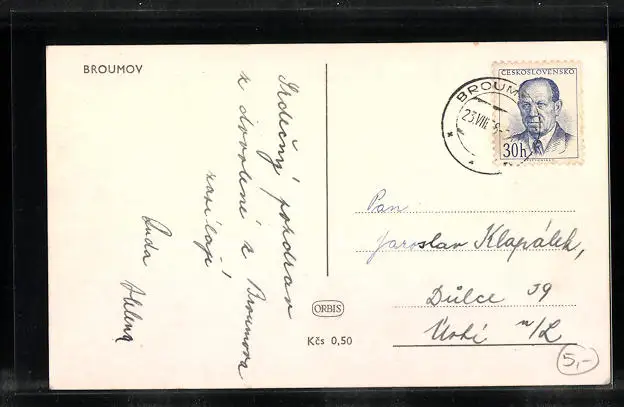 BROUMOV
Srdečný pozdrav
z dovolené z Broumova
zasílají
Ruda Helena
ORBIS
Kčs 0,50
BROUMOV
23.VIII.
ČESKOSLOVENSKO
30h
Pan
Jaroslav Klapálek,
Důlce 39
Ústí n/L
5,-